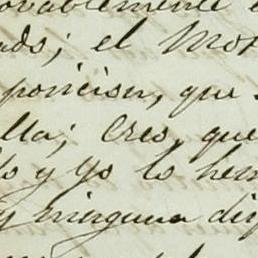 ovablemente
ads; el Mo
poricion, que
lla; Creo, que
y yo lo hem
y ninguna dis